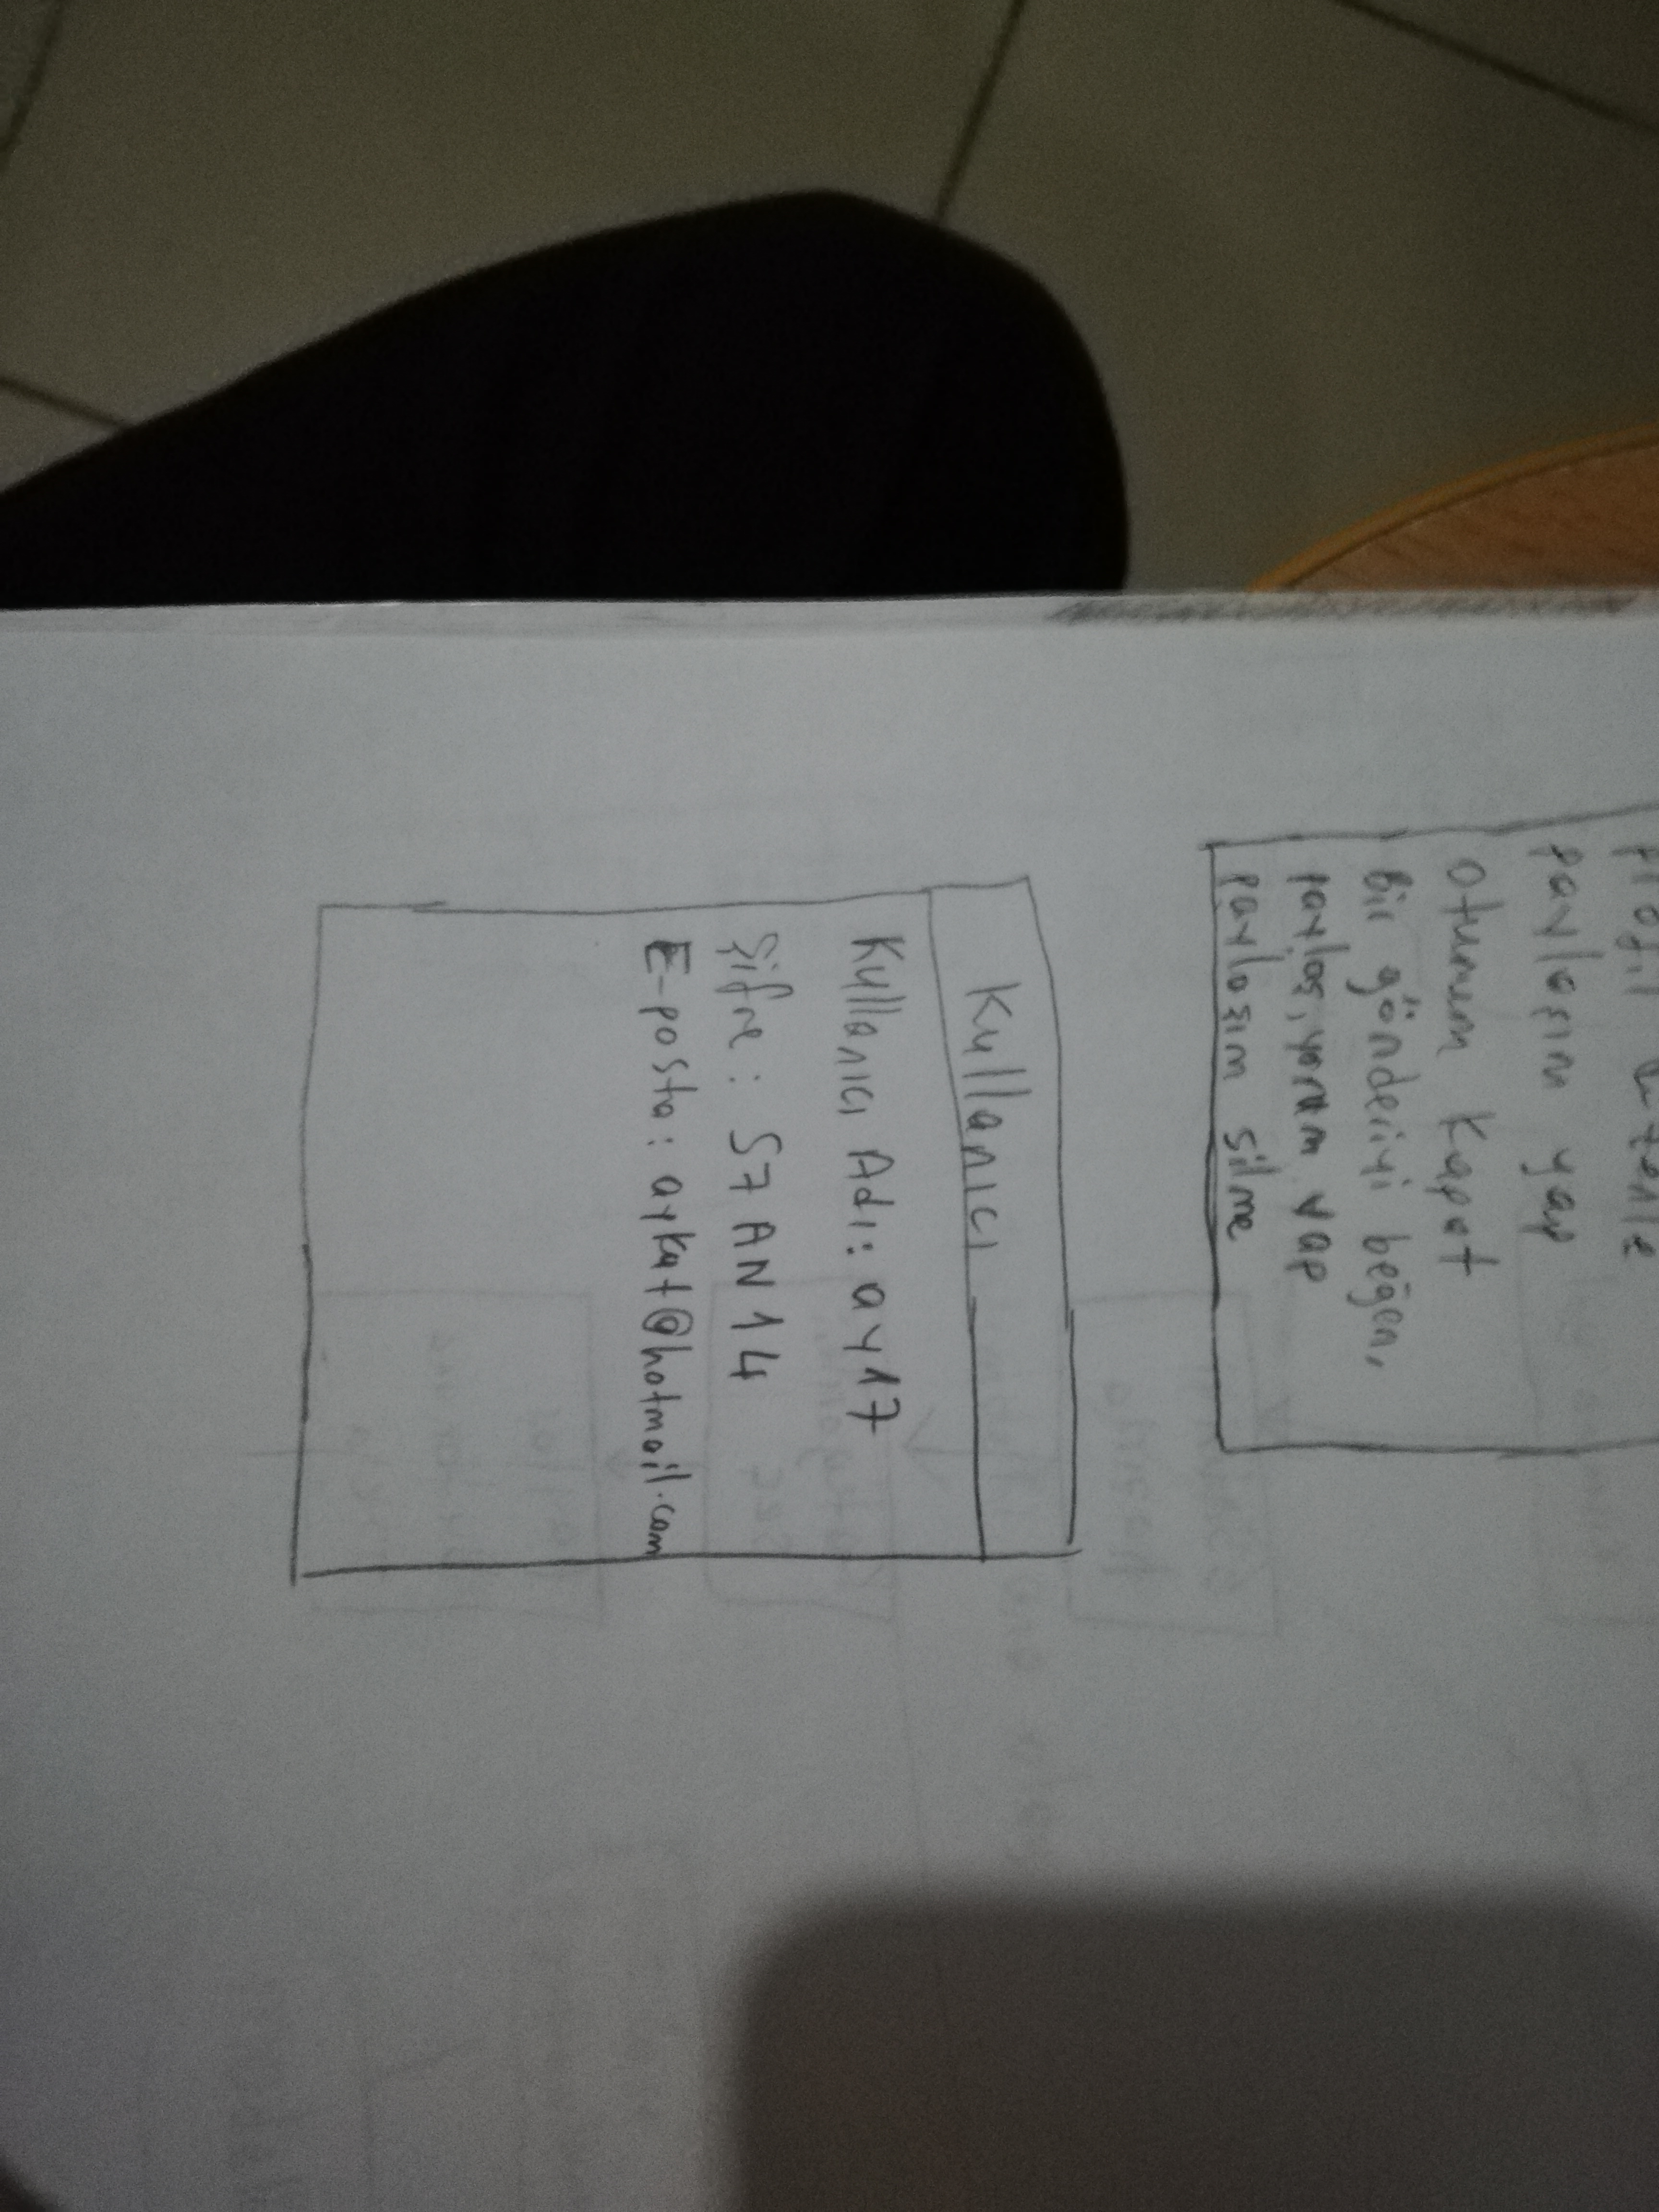 paylaşım yap
oturum kapat
bir gönderiyi beğen,
paylaş, yorum yap
paylaşım silme
Kullanıcı
Kullanıcı Adı: ay17
Şifre: S7AN14
E-posta: aykut@hotmail.com